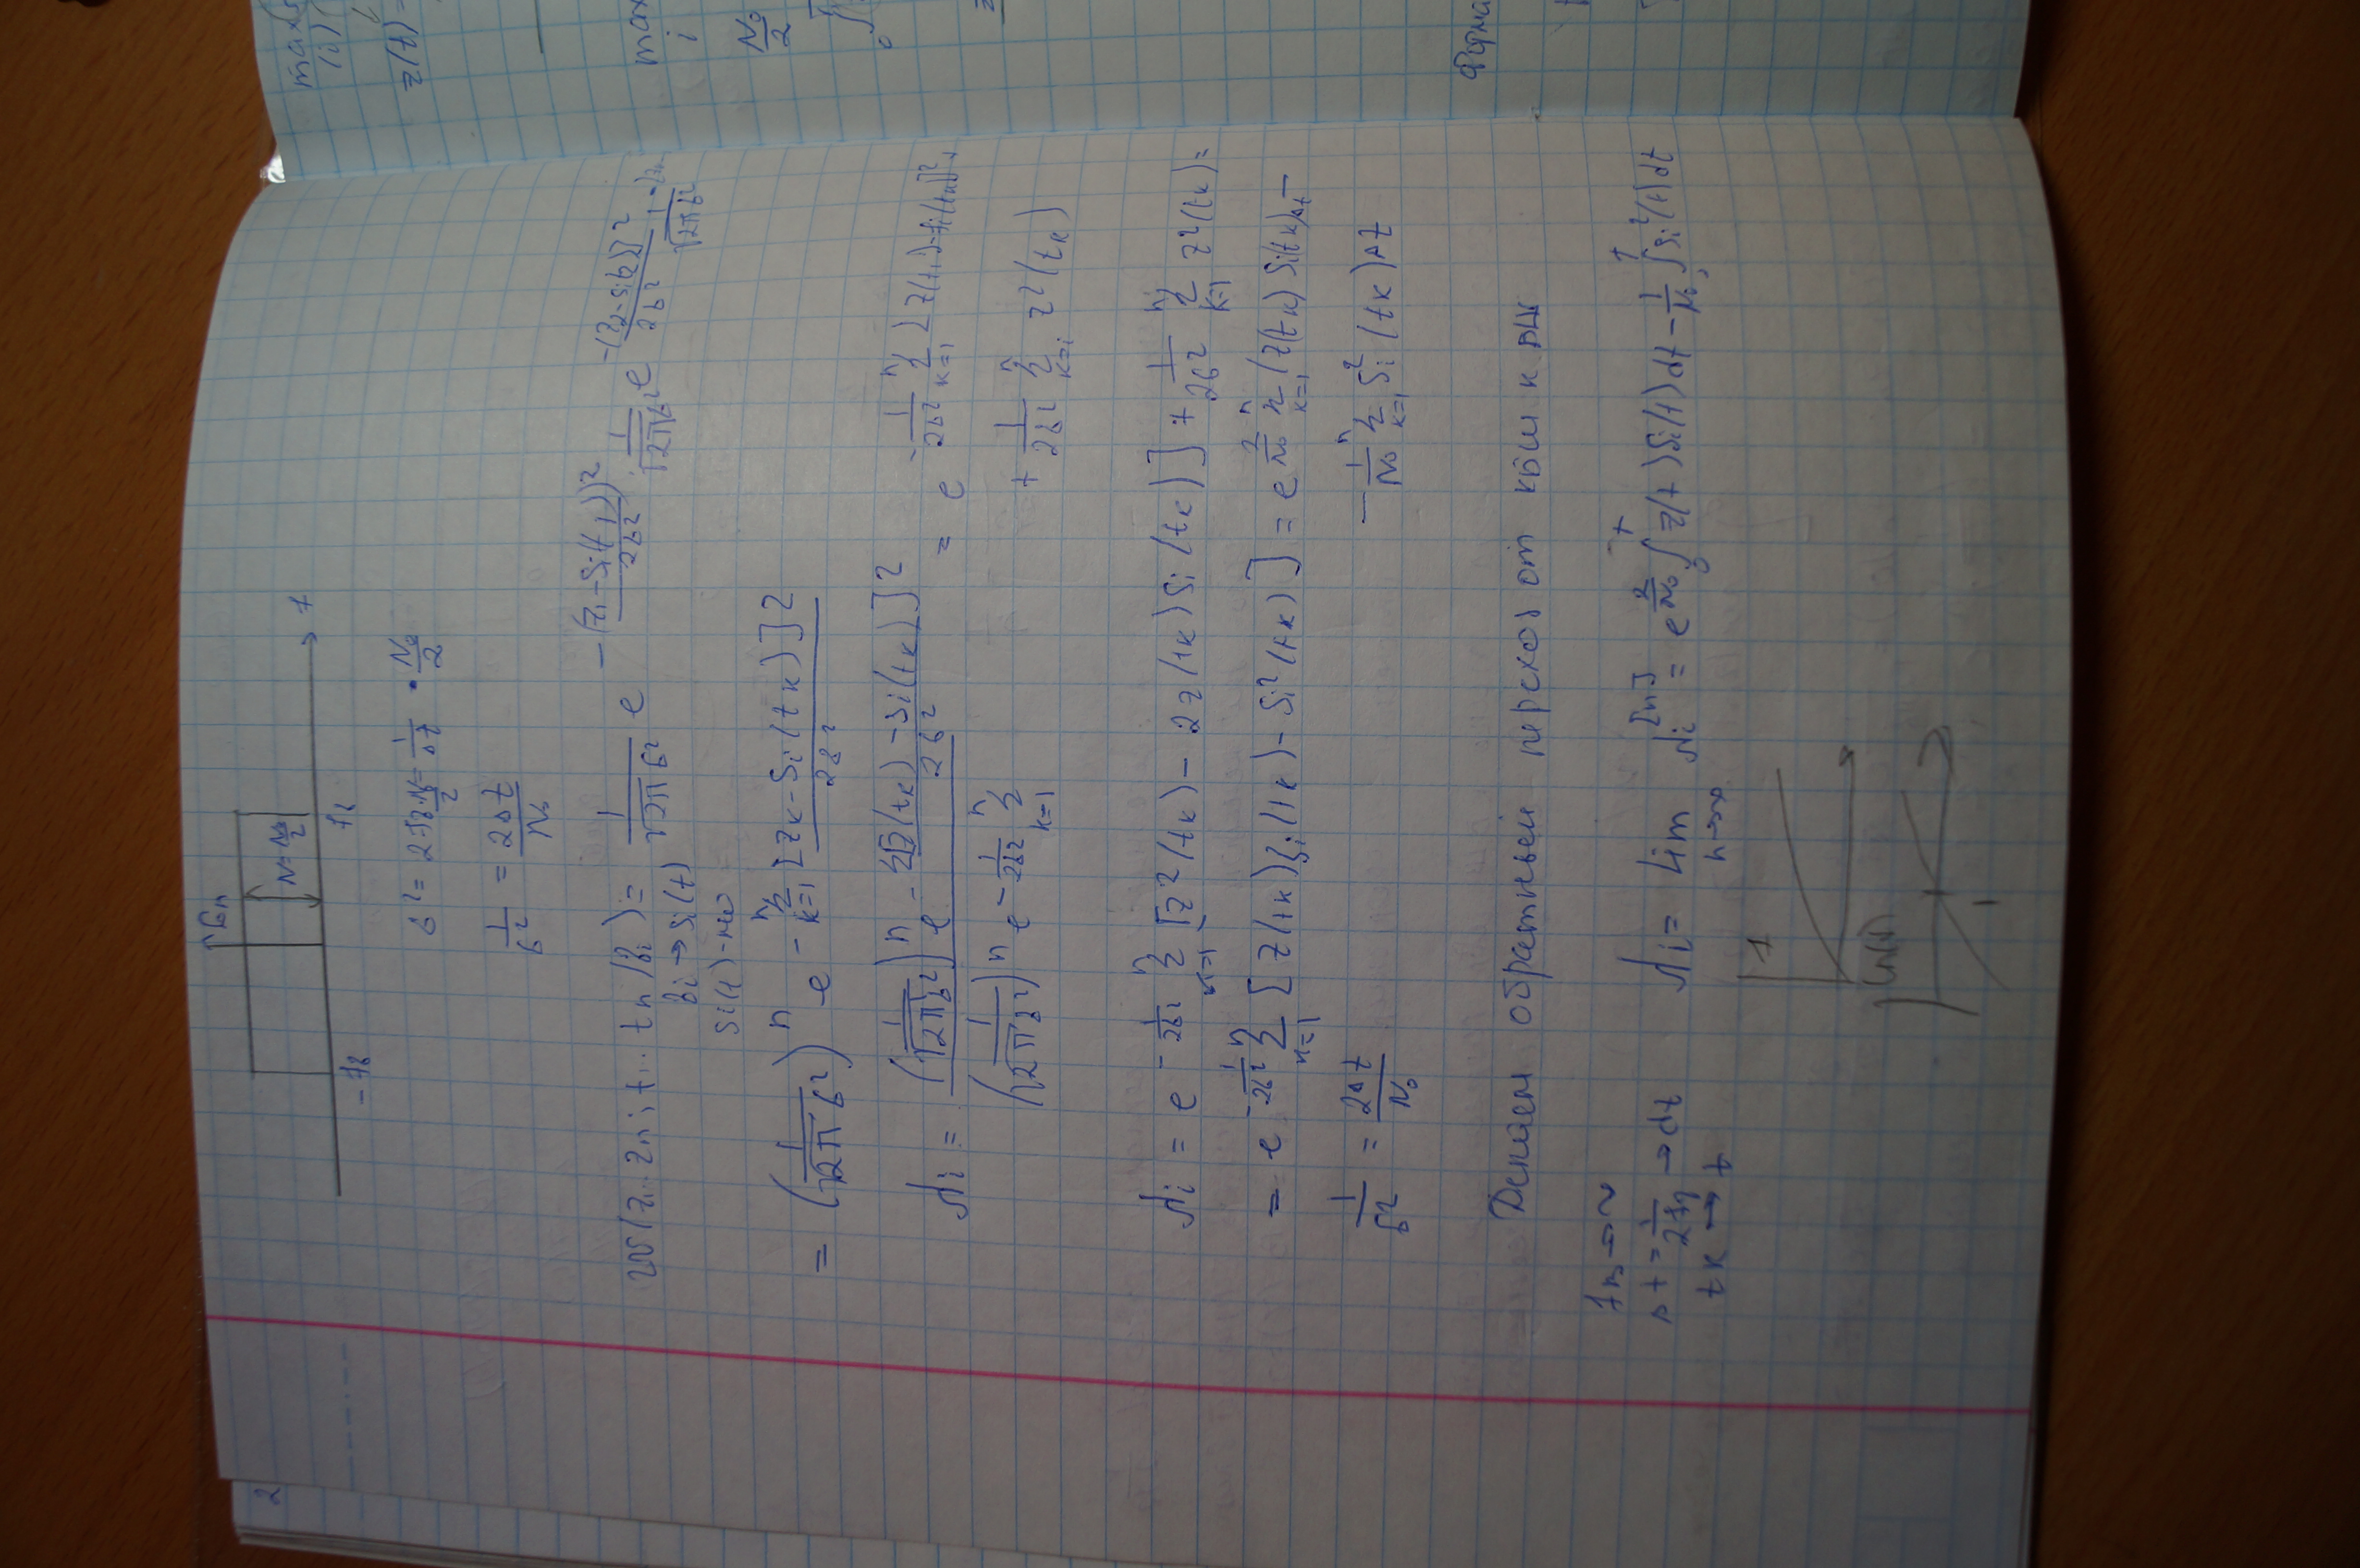 2
Gn
N = N₀/2
f
-fв
fв
σ² = 2·fв·N₀/2 = 1/Δt · N₀/2
1/σ² = 2Δt/N₀
w(z₁...zn; t₁...tn/bi) = 1/√2πσ² e^-(z₁-Si(t₁))²/2σ² · 1/√2πσ² e^-(z₂-Si(t₂)]²/2σ² 1/√2πσ²
bi → Si(t)
Si(t)-
= (1/√2πσ²)ⁿ e^-Σ(k=1,n) [zk-Si(tk)]²/2σ²
Λi = (1/√2πσ²)ⁿ e^-Σ[z(tk)-Si(tk)]²/2σ² / (1/√2πσ²)ⁿ e^-1/2σ² Σ(k=1,n) = e^-1/2σ² Σ(k=1,n) [z(tk)-Si(tk)]² +
+ 1/2σ² Σ(k=i,n) z²(tk)
Λi = e^-1/2σ² Σ(k=1,n) [z²(tk) - 2z(tk)Si(tk)] + 1/2σ² Σ(k=1,n) z²(tk) =
= e^-1/2σ² Σ(k=1,n) [z(tk)Si(tk) - Si²(tk)] = e^2/N₀ Σ(k=1,n) (z(tk) Si(tk)Δt -
1/σ² = 2Δt/N₀
- 1/N₀ Σ(k=1,n) Si²(tk)Δt
Делаем обратный переход от кбш к БШ
fв → ∞
Δt = 1/2fв → dt
tk → t
Λi = lim(n→∞) Λi^[n] = e^2/N₀ ∫₀ᵀ z(t)Si(t)dt - 1/N₀ ∫₀ᵀ Si²(t)dt
1